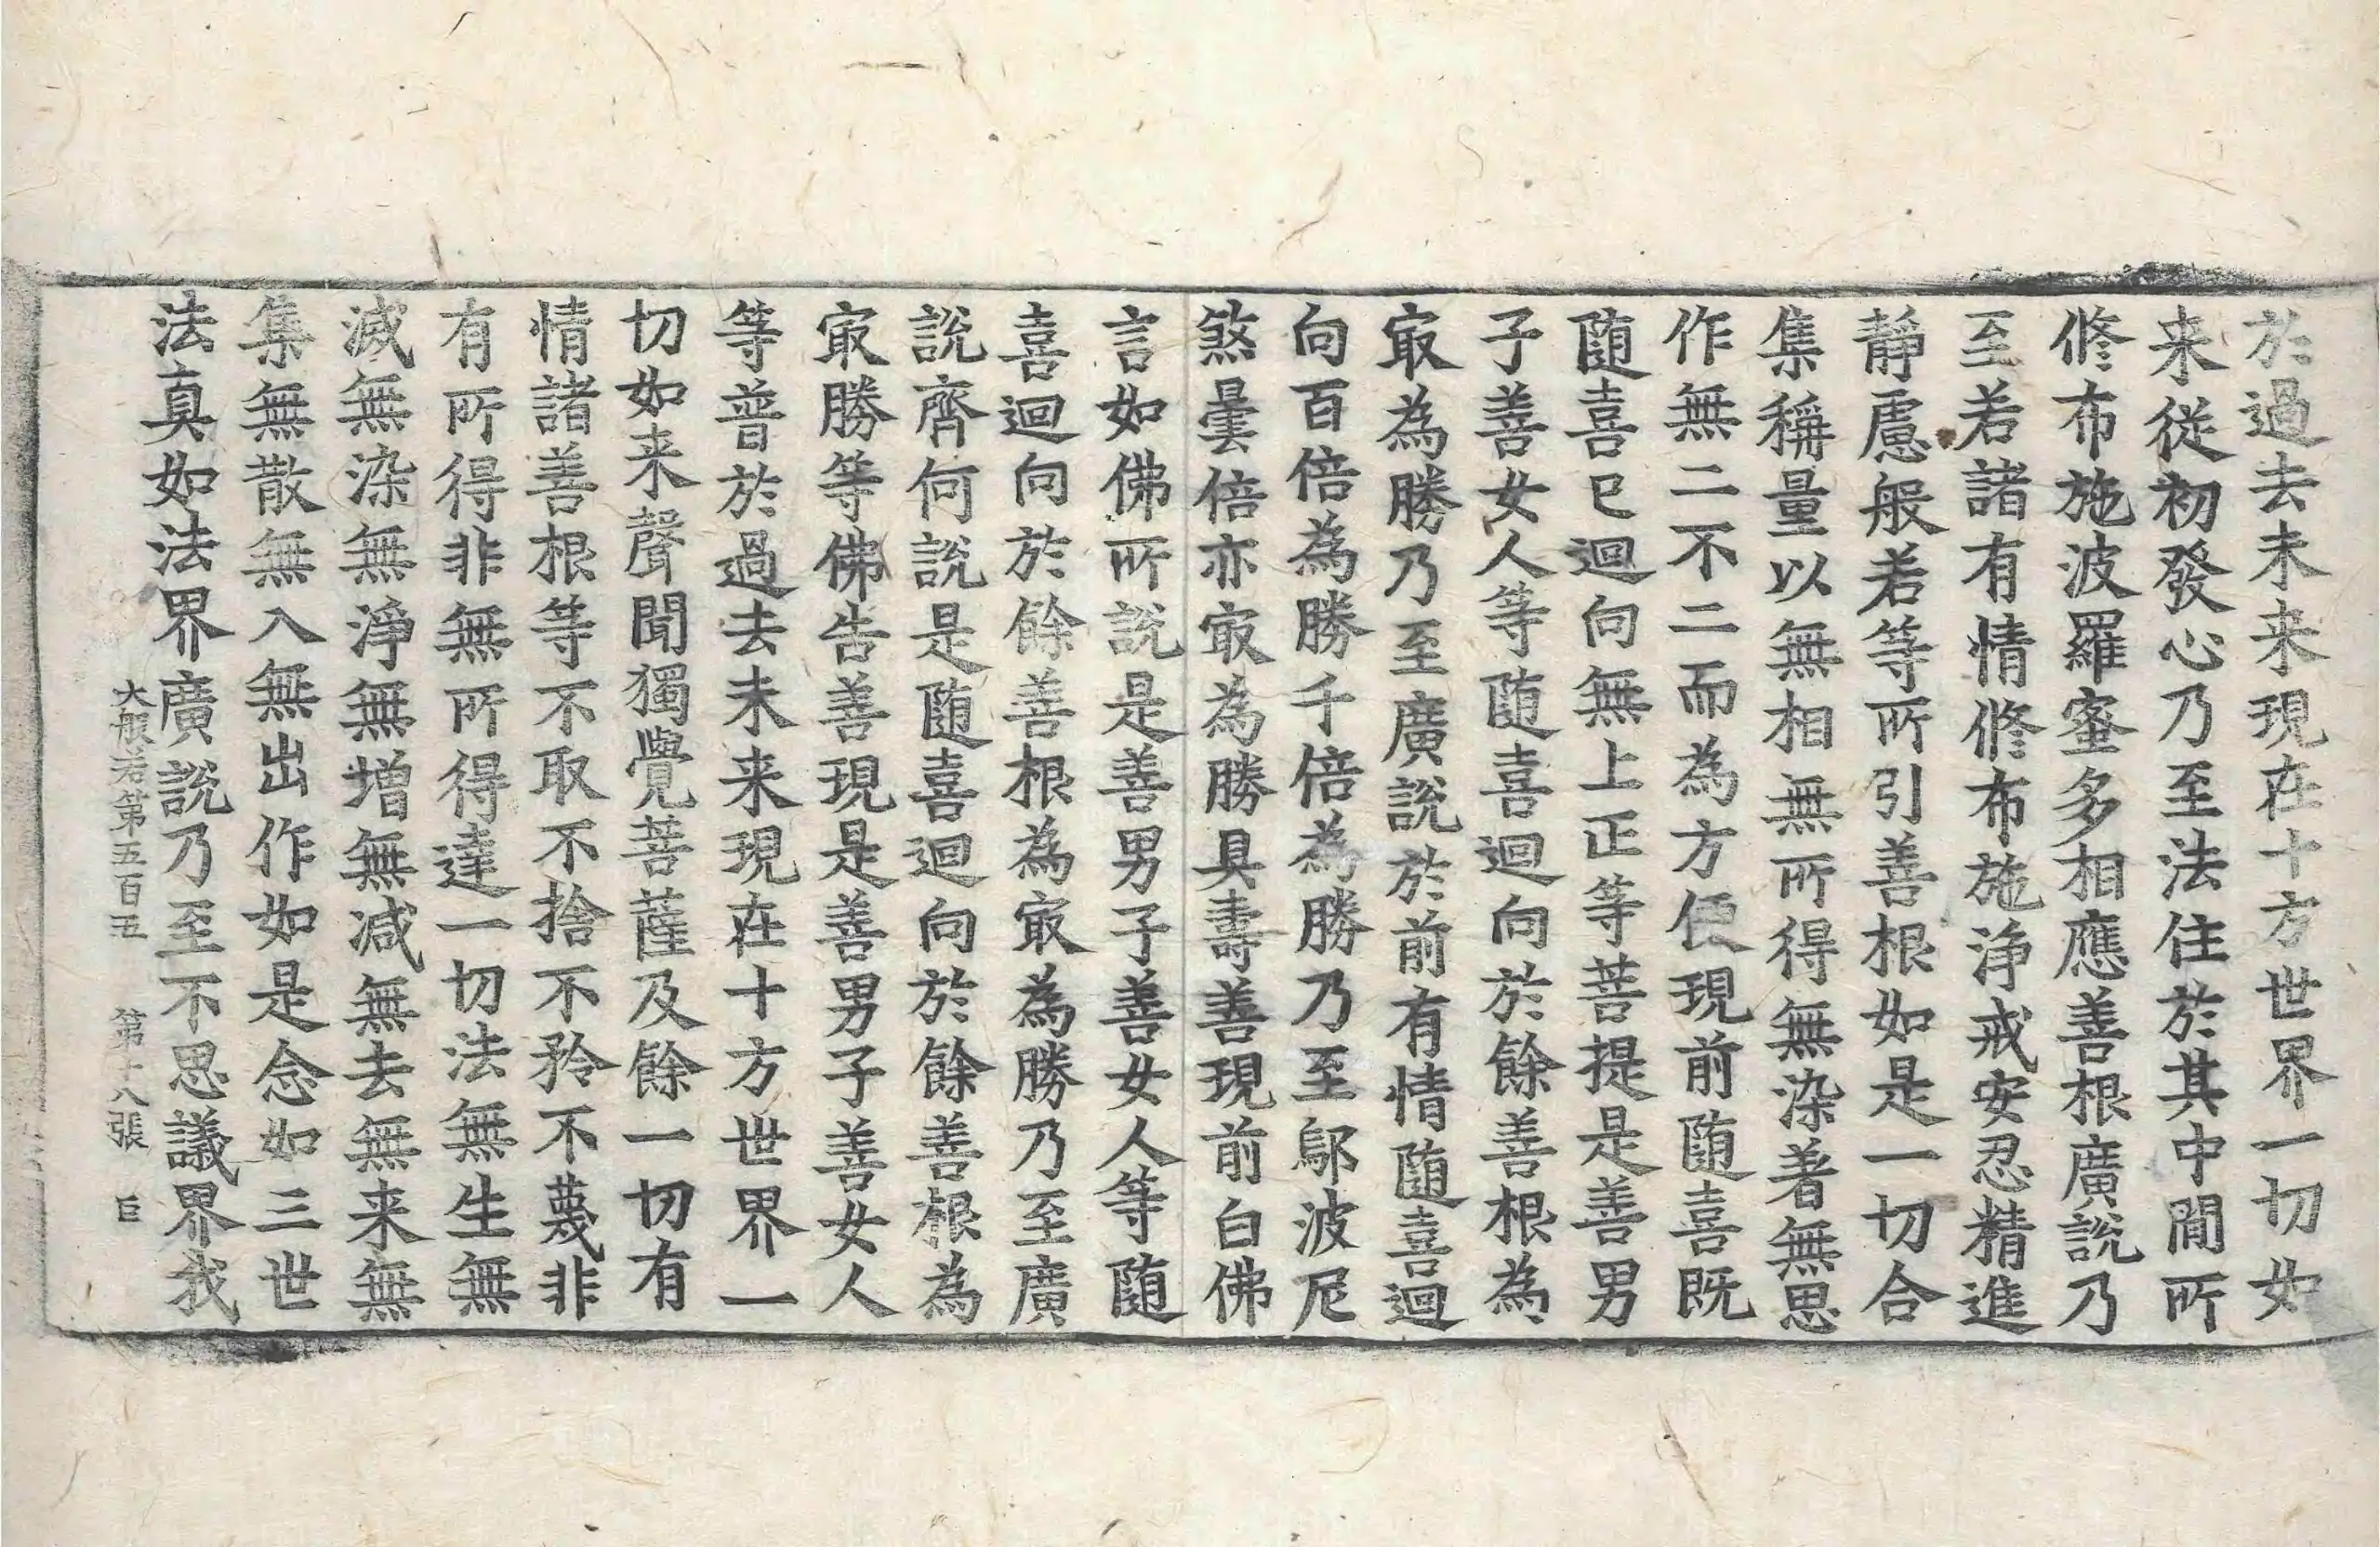 於過去未来現在十方世界一切如
来從初發心乃至法住於其中閒所
修布施波羅蜜多相應善根廣說乃
至若諸有情修布施淨戒安忍精進
靜慮般若等所引善根如是一切合
集稱量以無相無所得無染著無思
作無二不二而為方便現前随喜既
随喜已迴向無上正等菩提是善男
子善女人等随喜迴向於餘善根為
㝡為勝乃至廣說於前有情随喜迴
向百倍為勝千倍為勝乃至鄔波尼
煞曇倍亦㝡為勝具壽善現前白佛
言如佛所說是善男子善女人等随
喜迴向於餘善根為㝡為勝乃至廣
說齊何說是随喜迴向於餘善根為
㝡勝等佛告善現是善男子善女人
等普於過去未来現在十方世界一
切如来聲聞獨覺菩薩及餘一切有
情諸善根等不取不捨不矜不蔑非
有所得非無所得達一切法無生無
滅無染無淨無增無減無去無来無
集無散無入無出作如是念如三世
法真如法界廣說乃至不思議界我
大般若第五百五 第十八張 巨